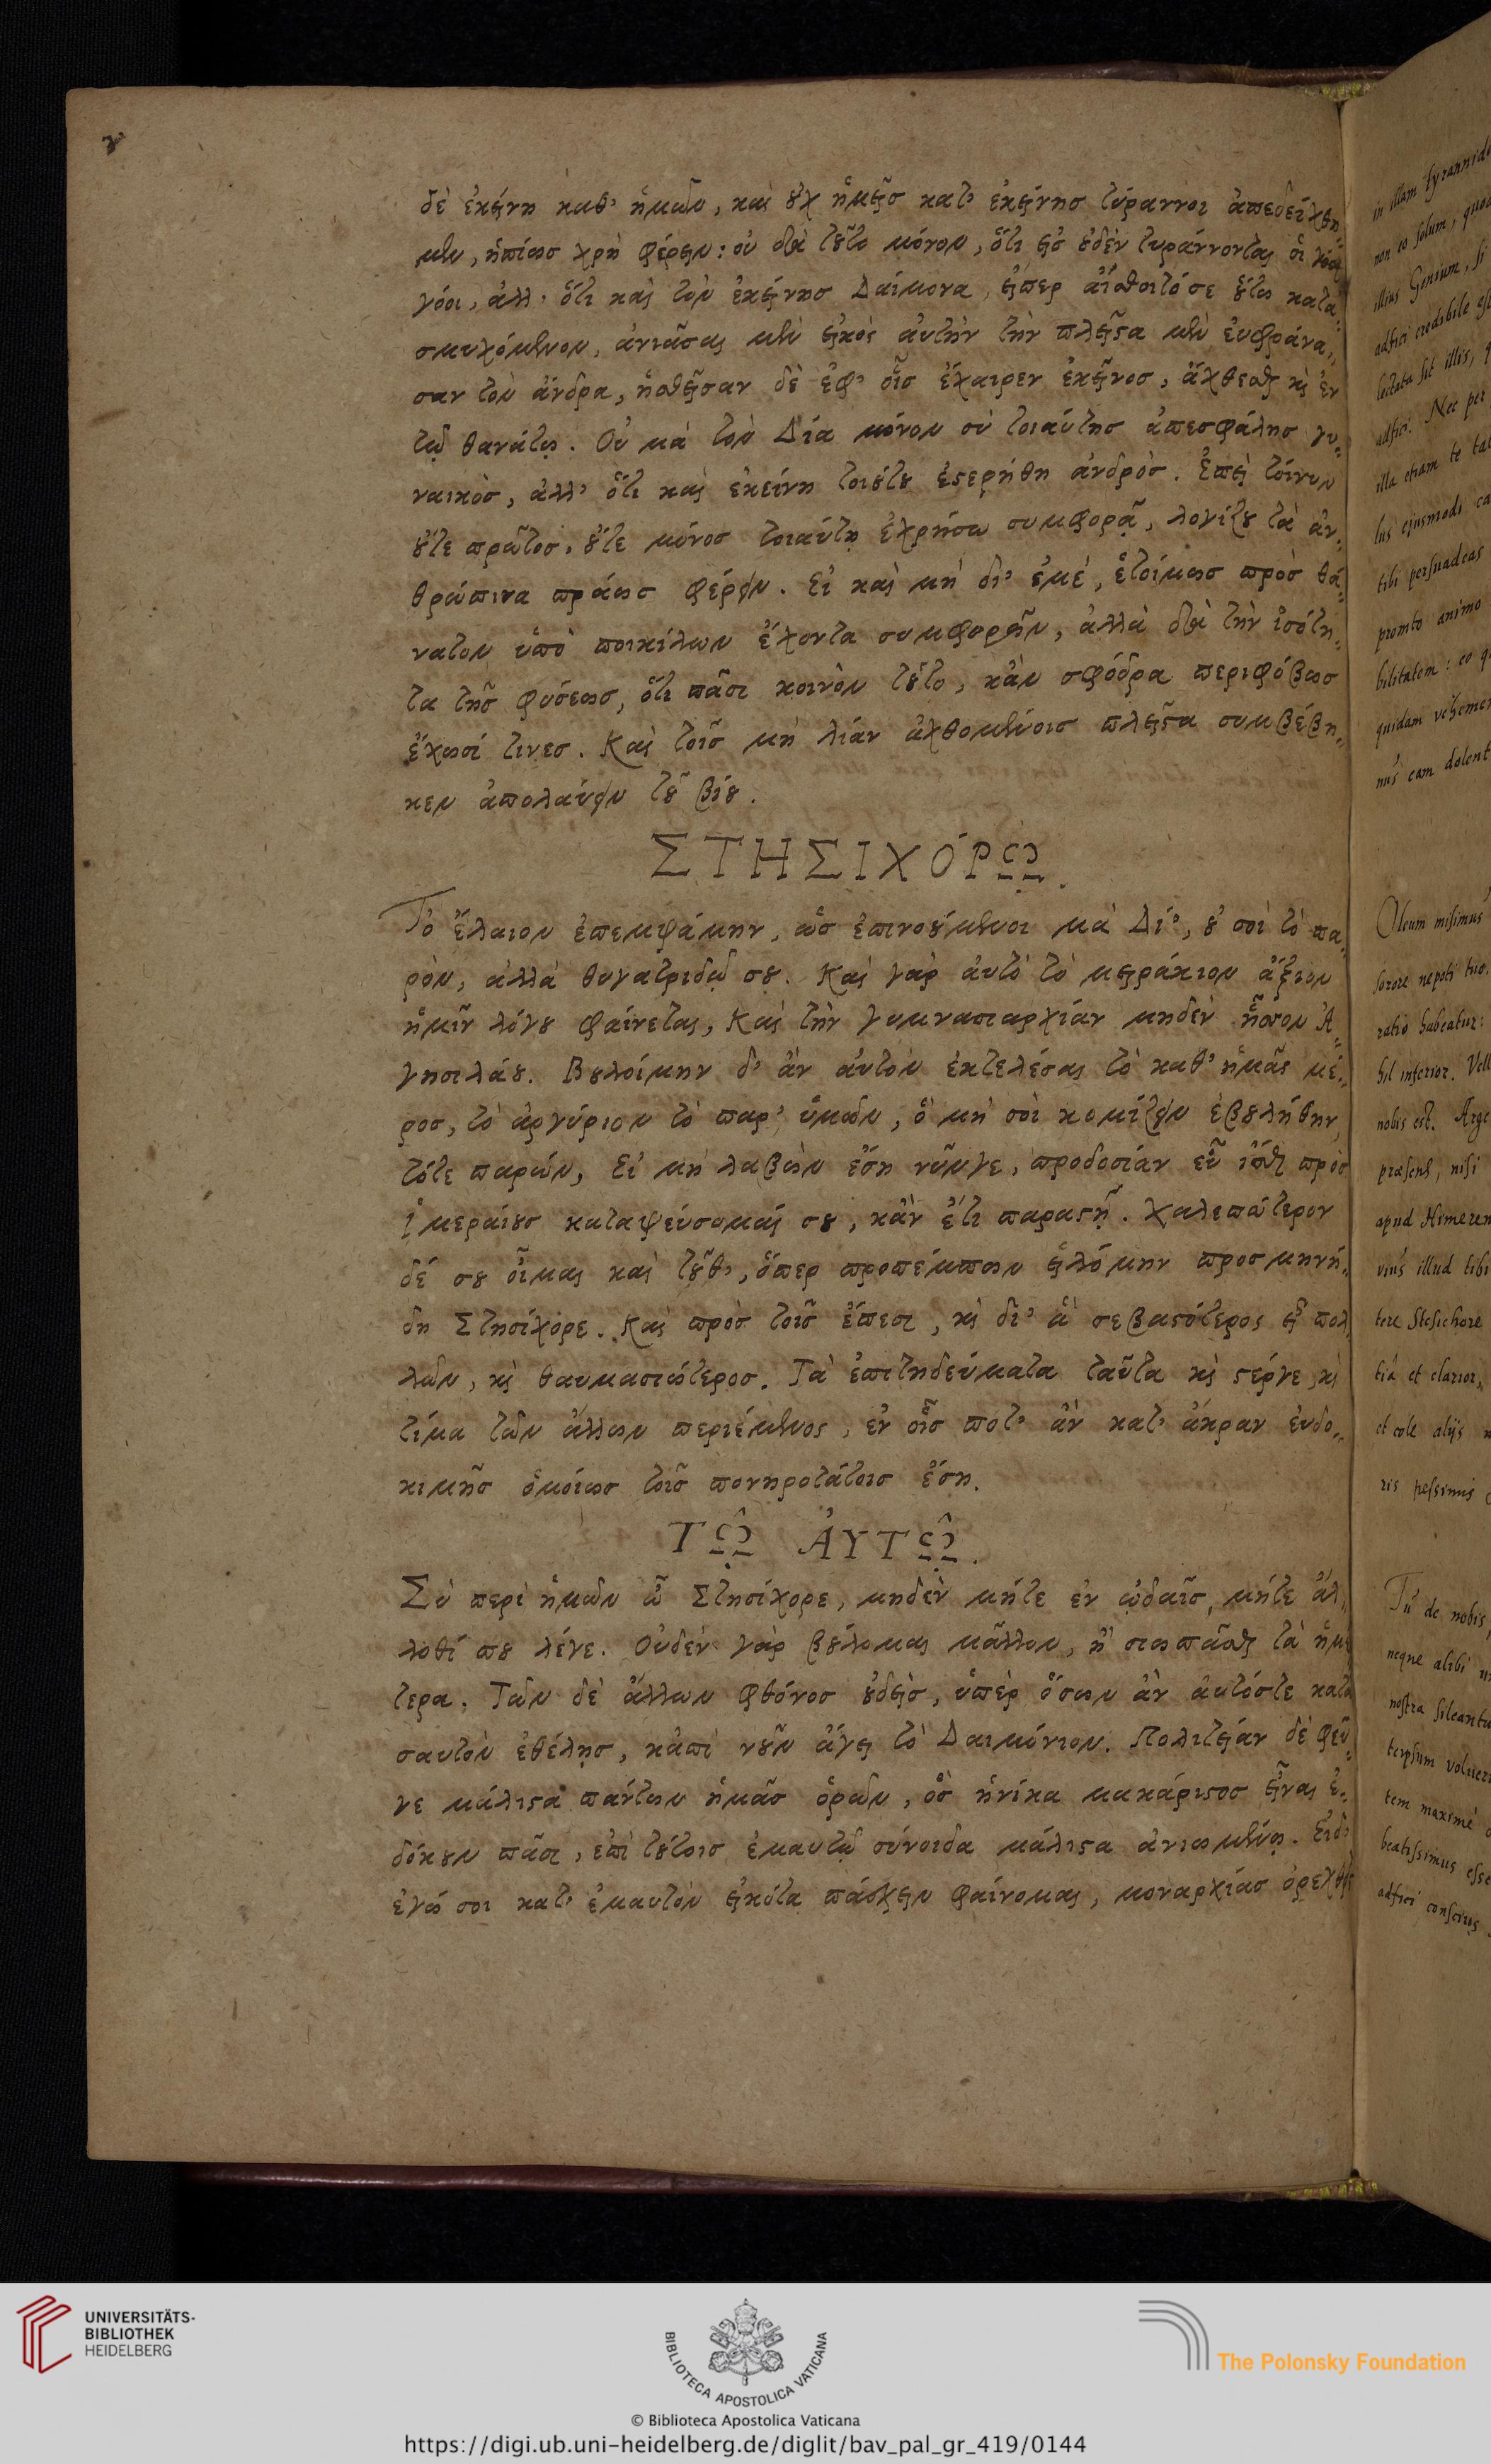 δὲ ἐκείνη καθ' ἡμῶν, καὶ οὐχ ἡμεῖς κατ' ἐκείνης τύραννοι ἀπεδείχθη-
μεν, ἠπίως χρὴ φέρειν: οὐ διὰ τοῦτο μόνον, ὅτι εἰς οὐδὲν τυράννονται οἱ
γόοι, ἀλλ' ὅτι καὶ τὸν ἐκείνης Δαίμονα, εἴπερ αἴσθοιτό σε οὕτω κατα-
σμυχόμενον, ἀνιᾶσαι μὲν εἰκὸς ἀυτὴν τὴν πλεῖστα μὲν ἐυφράνα-
σαν τὸν ἄνδρα, ἡσθεῖσαν δὲ ἐφ' οἷς ἔχαιρεν ἐκεῖνος, ἄχθεσθαι καὶ ἐν
τῷ θανάτῳ. Οὐ μὰ τὸν Δία μόνον σὺ τοιαύτης ἀπεσφάλης γυ-
ναικὸς, ἀλλ' ὅτι καὶ ἐκείνη τοιούτου ἐστερήθη ἀνδρός. Ἐπεὶ τοίνυν
οὔτε πρῶτος, οὔτε μόνος τοιαύτῃ ἐχρήσω συμφορᾷ, λογίζου τὰ ἀν-
θρώπινα πράως φέρειν. Εἰ καὶ μὴ δι' ἐμὲ, ἑτοίμως πρὸς θά-
νατον ὑπὸ ποικίλων ἔχοντα συμφορῶν, ἀλλὰ διὰ τὴν ἰσότη-
τα τῆς φύσεως, ὅτι πᾶσι κοινὸν τοῦτο, κἂν σφόδρα περιφόβως
ἔχωσί τινες. Καὶ τοῖς μὴ λίαν ἀχθομένοις πλεῖστα συμβέβη-
κεν ἀπολαύειν τοῦ βίου.
ΣΤΗΣΙΧΌΡΩ.
Τὸ ἔλαιον ἐπεμψάμην, ὡς ἐπινοούμενοι μὰ Δί', οὐ σοὶ τὸ πα-
ρὸν, ἀλλὰ θυγατριδῷ σου. Καὶ γὰρ ἀυτὸ τὸ μειράκιον ἄξιον
ἡμῖν λόγου φαίνεται, Καὶ τὴν γυμνασιαρχίαν μηδὲν ἧσσον Ἀ-
γησιλάου. Βουλοίμην δ' ἂν αὐτὸν ἐκτελέσαι τὸ καθ' ἡμᾶς μέ-
ρος, τὸ ἀργύριον τὸ παρ' ὑμῶν, ὃ μὴ σοὶ κομίζειν ἐβουλήθην
τότε παρὼν, Εἰ μὴ λαβὼν ἔσῃ νῦνγε, προδοσίαν εὖ ἴσθι πρὸς
Ἱμεραίους καταψεύσομαί σου, κἂν ἔτι παραστῇ. Χαλεπώτερον
δέ σου οἶμαι καὶ τοῦθ', ὅπερ προπέμπων εἱλόμην προσμηνύ-
δη Στησίχορε. Καὶ πρὸς τοῖς ἔπεσι, καὶ δι' ἃ σεβαστότερος εἶ πολ-
λῶν, καὶ θαυμασιώτερος. Τὰ ἐπιτηδεύματα ταῦτα καὶ στέργε, καὶ
τίμα τῶν ἄλλων περιέμενος, ἐν οἷς ποτ' ἂν κατ' ἄκραν ἐυδο-
κιμῇς ὁμοίως τοῖς πονηροτάτοις ἔσῃ.
ΤΩ͂ ἈΥΤΩ͂.
Σὺ περὶ ἡμῶν ὦ Στησίχορε, μηδὲν μήτε ἐν ᾠδαῖς, μήτε ἄλ-
λοθί που λέγε. Οὐδὲν γὰρ βούλομαι μᾶλλον, ἢ σιωπᾶσθαι τὰ ἡμέ
τερα. Τῶν δὲ ἄλλων φθόνος οὐδεὶς, ὑπὲρ ὅσων ἂν ἀυτόστε κατα
σαυτὸν ἐθέλῃς, κἀπὶ νοῦν ἄγει τὸ Δαιμόνιον. Πολιτείαν δὲ φεῦ-
γε μάλιστα πάντων ἡμᾶς ὁρῶν, ὃς ἡνίκα μακάριστος εἶναι ἐ-
δόκουν πᾶσι, ἐπὶ τούτοις ἐμαυτῷ σύνοιδα μάλιστα ἀνιωμένῳ. Εἰ δ'
ἐγώ σοι κατ' ἐμαυτὸν εἰκότα πάσχειν φαίνομαι, μοναρχίας ὀρεχθεὶς
in illam tyrannid
non eo solum, quod
illius Genium, si
adfici credibile est
lectata sit illis, q
adfici. Nec per
illa etiam te tal
lus ejusmodi ca
tibi persuadeas
promto animo
bilitatem: eo q
quidam vehemen
nus eam dolent
Oleum misimus
sorore nepoti tuo.
ratio habeatur:
hil inferior. Vell
nobis est. Arge
praesens, nisi
apud Himeren
vius illud tibi
tere Stesichore
tiâ et clarior,
et cole alijs
ris pessimis
Tu de nobis,
neque alibi
nostra sileantu
teipsum volueri
tem maximè
beatissimus esse
adfici conscius
UNIVERSITÄTS-
BIBLIOTHEK
HEIDELBERG
BIBLIOTECA APOSTOLICA VATICANA
The Polonsky Foundation
© Biblioteca Apostolica Vaticana
https://digi.ub.uni-heidelberg.de/diglit/bav_pal_gr_419/0144